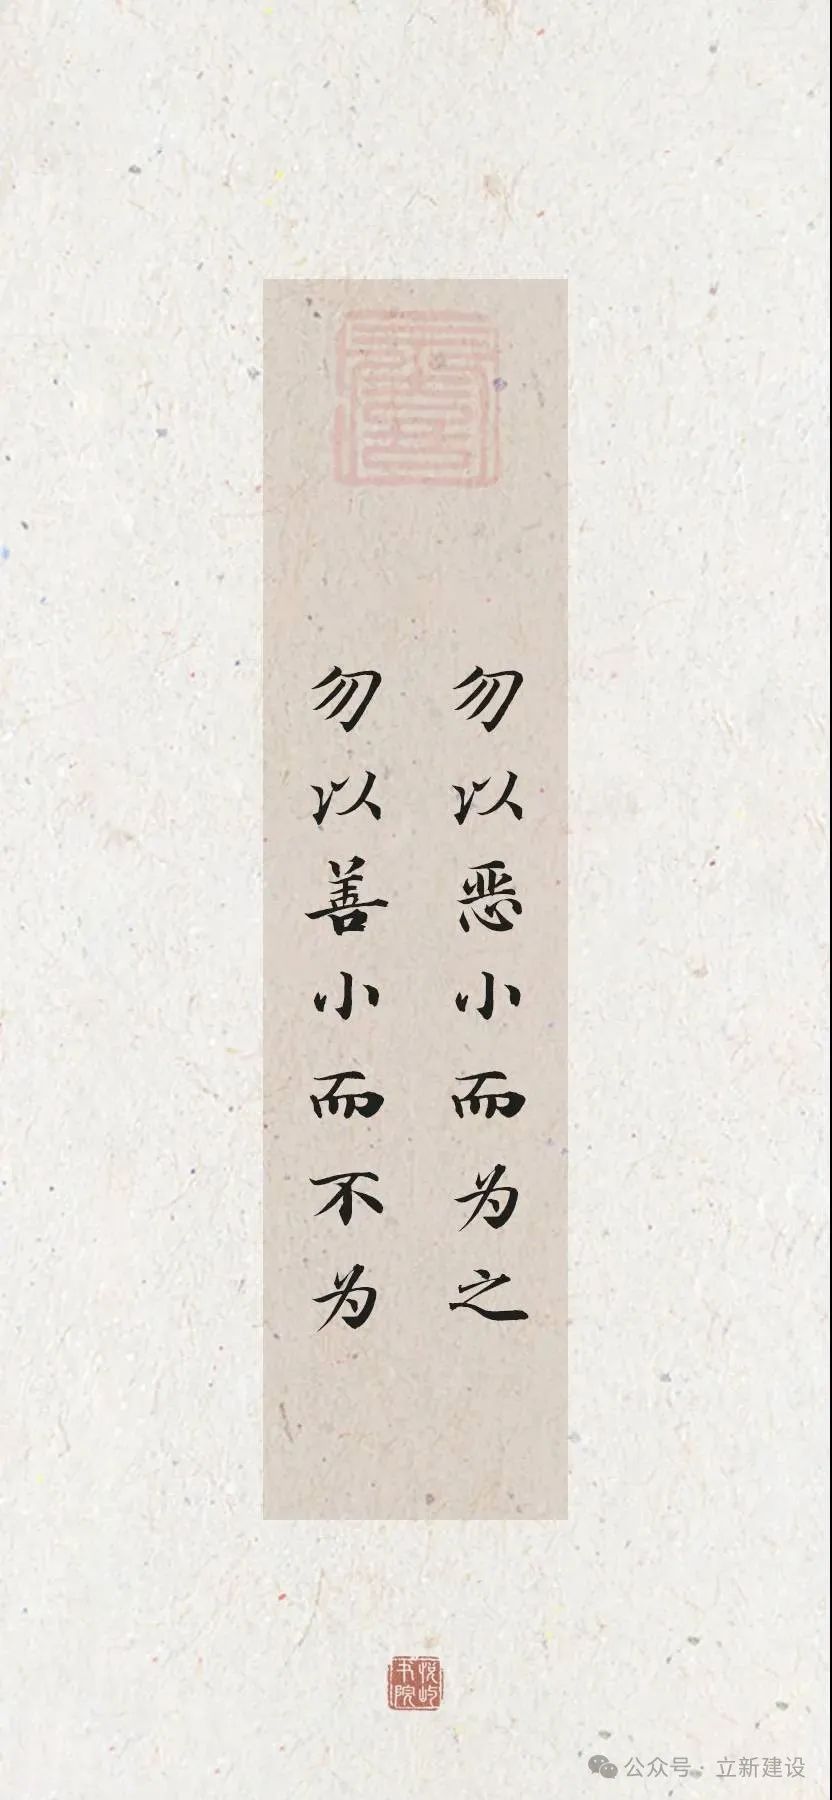 勿以恶小而为之
勿以善小而不为
悦屿
书院
公众号 · 立新建设